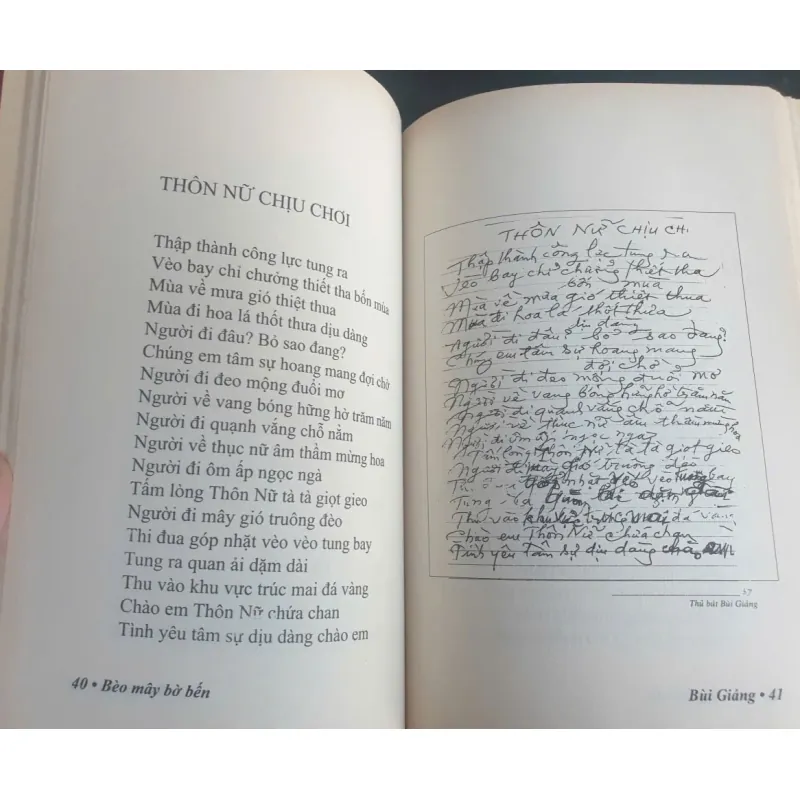 THÔN NỮ CHỊU CHƠI
Thập thành công lực tung ra
Vèo bay chỉ chưởng thiết tha bốn mùa
Mùa về mưa gió thiệt thua
Mùa đi hoa lá thốt thưa dịu dàng
Người đi đâu? Bỏ sao đang?
Chúng em tâm sự hoang mang đợi chờ
Người đi đeo mộng đuổi mơ
Người về vang bóng hững hờ trăm năm
Người đi quạnh vắng chỗ nằm
Người về thục nữ âm thầm mừng hoa
Người đi ôm ấp ngọc ngà
Tấm lòng Thôn Nữ tà tà giọt gieo
Người đi mây gió truông đèo
Thi đua góp nhặt vèo vèo tung bay
Tung ra quan ải dặm dài
Thu vào khu vực trúc mai đá vàng
Chào em Thôn Nữ chứa chan
Tình yêu tâm sự dịu dàng chào em
40 • Bèo mây bờ bến
THÔN NỮ CHỊU CH
Thập thành công lực tung ra
Vèo bay chỉ chưởng thiết tha
bốn mùa
Mùa về mưa gió thiệt thua
Mùa đi hoa lá thốt thưa
dịu dàng
Người đi đâu? bỏ sao đang?
Chúng em tâm sự hoang mang
đợi chờ
Người đi đeo mộng đuổi mơ
Người về vang bóng hững hờ trăm năm
Người đi quạnh vắng chỗ nằm
Người về thục nữ âm thầm mừng hoa
Người đi ôm ấp ngọc ngà
Tấm lòng Thôn Nữ tà tà giọt gieo
Người đi mây gió truông đèo
nhặt vèo vèo tung bay
Tung ra dặm dài
Thu vào khu vực trúc mai đá vàng
Chào em Thôn Nữ chứa chan
Tình yêu tâm sự dịu dàng chào em
57
Thủ bút Bùi Giáng
Bùi Giáng • 41